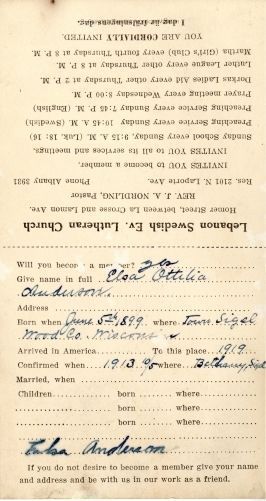 Lebanon Swedish Ev. Lutheran Church
Homer Street between La Crosse and Lamon Ave.
REV. A. J. NORDLING, Pastor
Res. 2101 N. Laporte Ave. Phone Albany 3931
INVITES YOU to become a member.
INVITES YOU to all its services and meetings.
Sunday School every Sunday, 9:15 A. M. (Luk. 18, 16)
Preaching Service every Sunday 10:45 A. M. (Swedish)
Preaching Service every Sunday 7:45 P. M. (English)
Prayer meeting every Wednesday 8:00 P. M.
Dorkas Ladies Aid every other Thursday at 2 P. M.
Luther League every other Thursday at 8 P. M.
Martha (Girl's Club) every fourth Thursday at 8 P. M.
YOU ARE CORDIALLY INVITED.
I dag är frälsningens dag.
Will you become a member? yes
Give name in full Elsa Ottilia
Anderson.
Address
Born when June 5th, 1899 where Town Sigel
Wood Co. Wisconsin
Arrived in America To this place 1919
Confirmed when 1913 where Bethany, Sigel
Married, when
Children born where
born where
born where
Elsa Anderson
If you do not desire to become a member give your name
and address and be with us in our work as a friend.